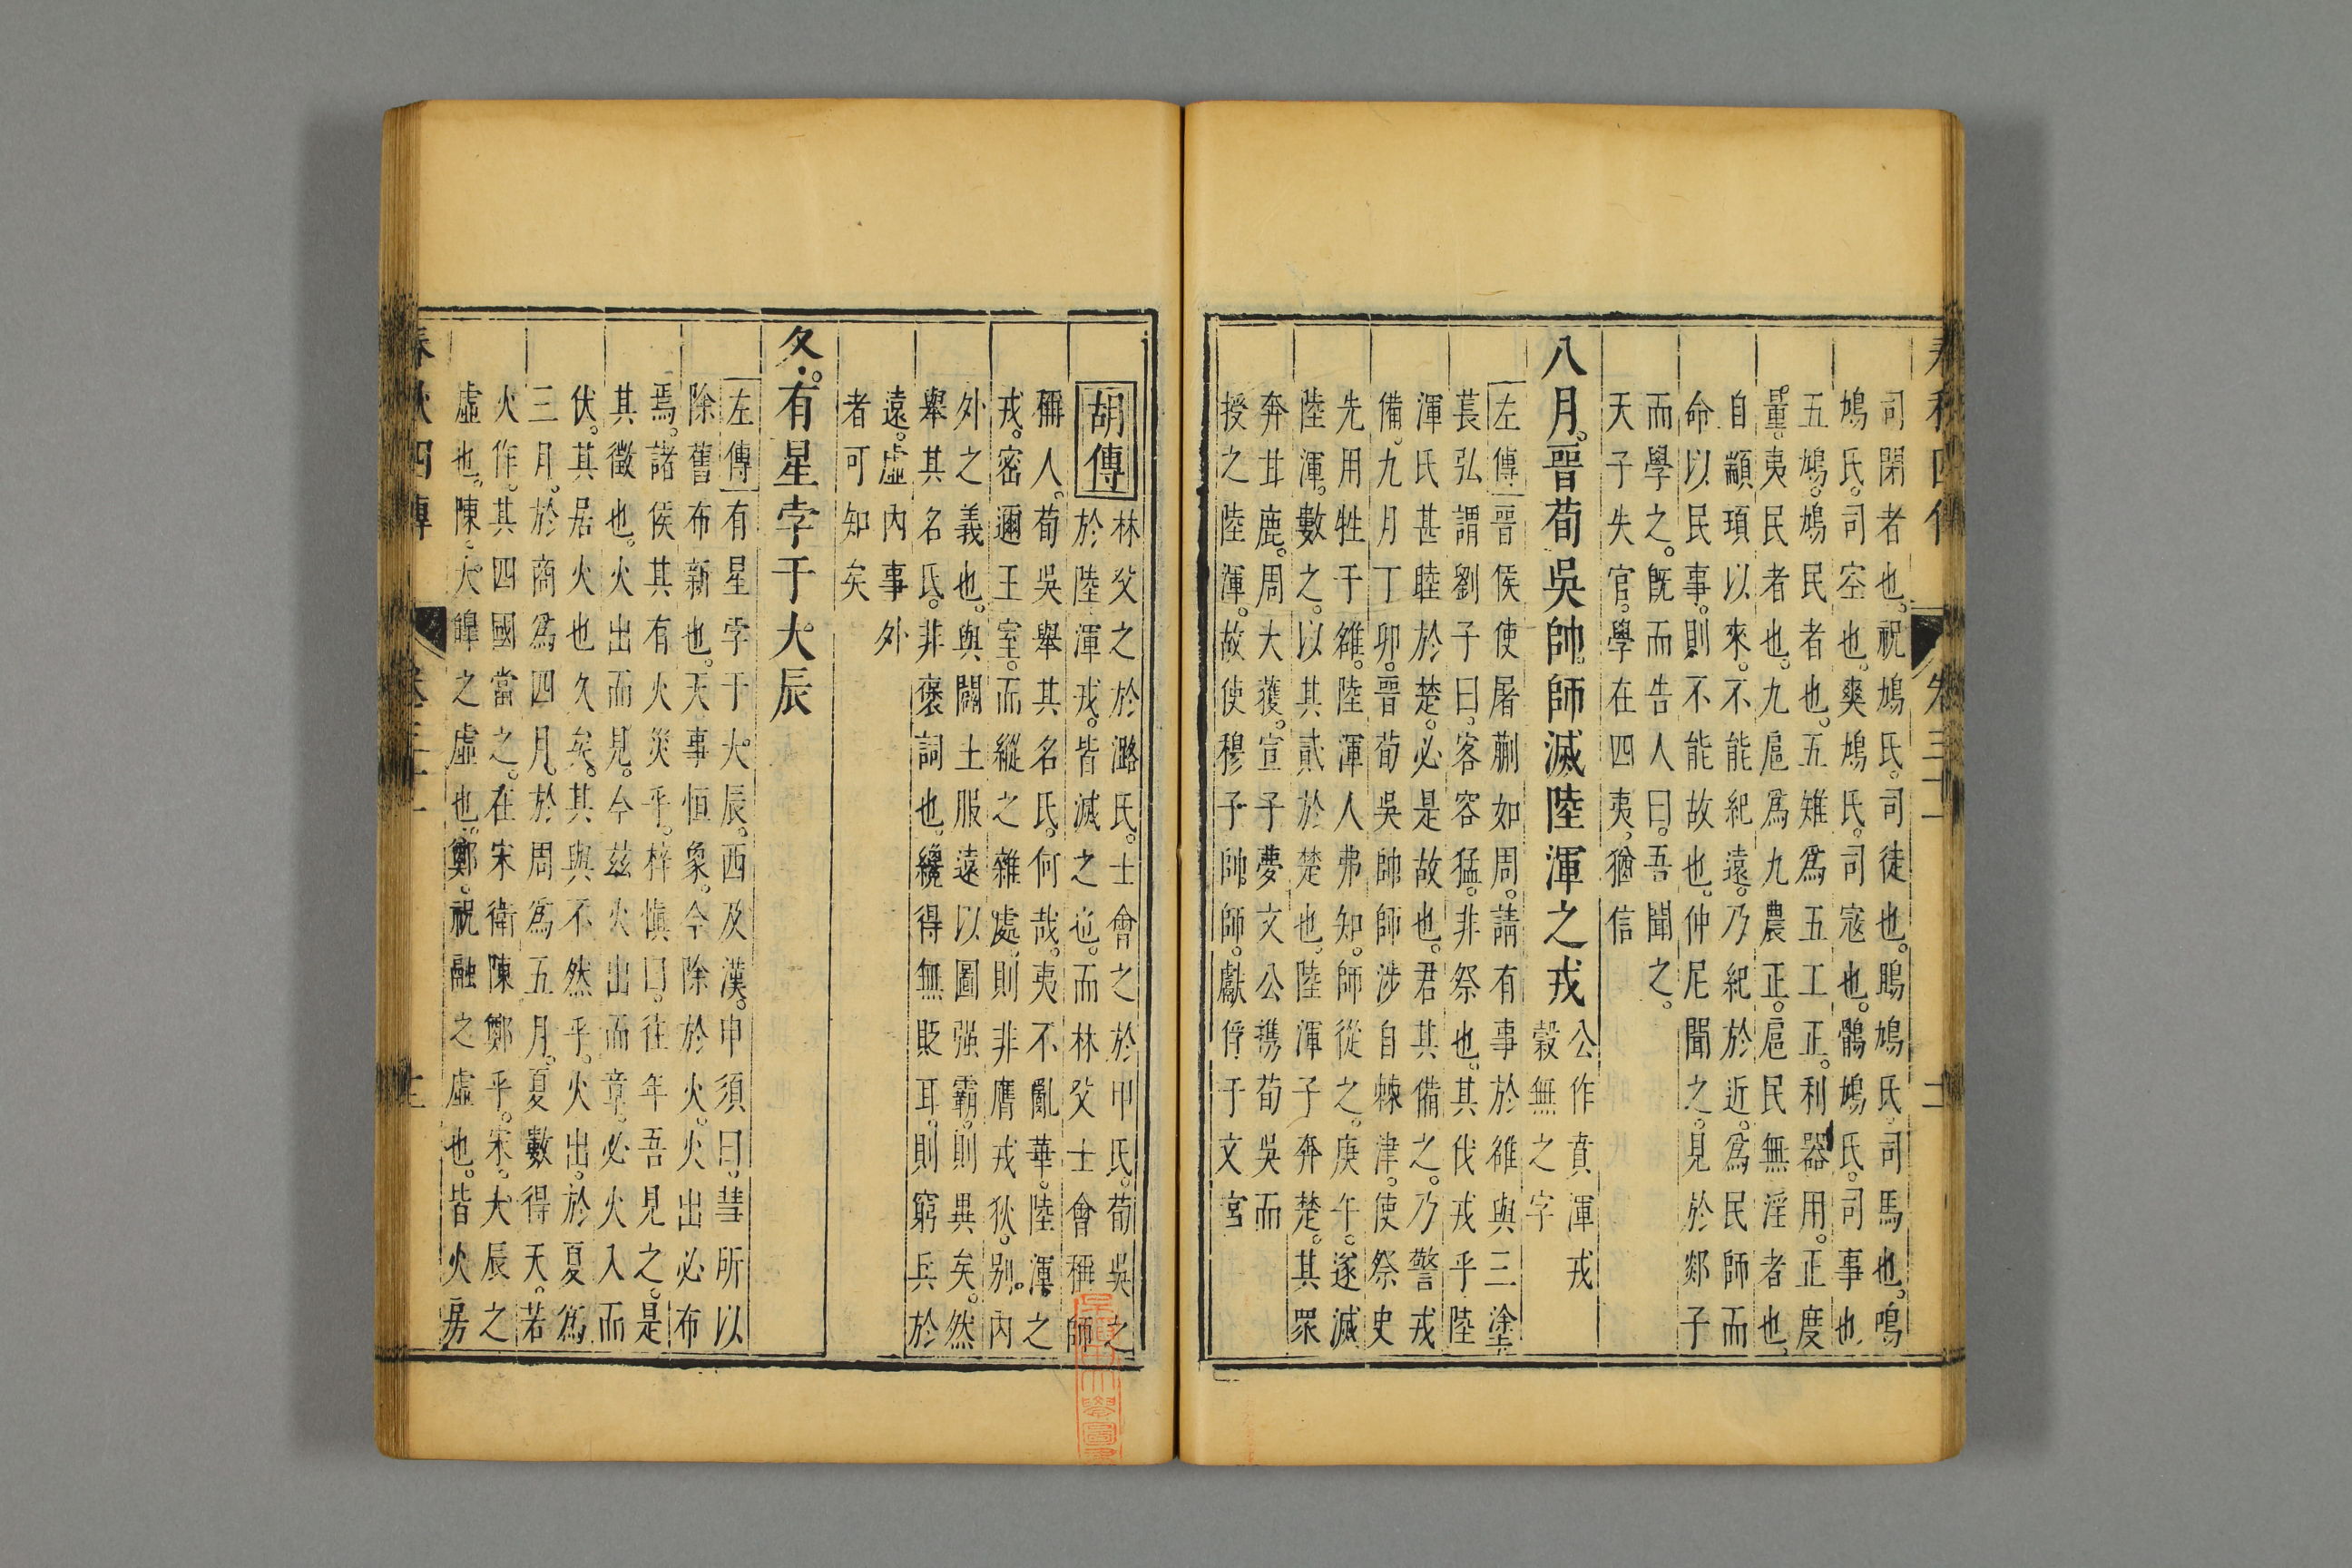 司閉者也。祝鳩氏。司徒也。鴡鳩氏。司馬也。鳲
鳩氏。司空也。爽鳩氏。司寇也。鶻鳩氏。司事也
五鳩。鳩民者也。五雉爲五工正。利器用。正度
量。夷民者也。九扈爲九農正。扈民無淫者也
自顓頊以來。不能紀遠。乃紀於近。爲民師而
命以民事。則不能故也。仲尼聞之。見於郯子
而學之。旣而告人曰。吾聞之。
天子失官。學在四夷。猶信
八月。晉荀吳帥師滅陸渾之戎
公作賁渾戎
穀無之字
左傳 晉侯使屠蒯如周。請有事於雒與三塗
萇弘謂劉子曰。客容猛。非祭也。其伐戎乎陸
渾氏甚睦於楚。必是故也。君其備之。乃警戎
備。九月丁卯。晉荀吳帥師涉自棘津。使祭史
先用牲于雒。陸渾人弗知。師從之。庚午。遂滅
陸渾。數之。以其貳於楚也。陸渾子奔楚。其眾
奔甘鹿。周大獲。宣子夢文公攜荀吳而
授之陸渾。故使穆子帥師。獻俘于文宮
胡傳
林父之於潞氏。士會之於甲氏。荀吳之
於陸渾戎。皆滅之也。而林父士會稱師
稱人。荀吳舉其名氏。何哉。夷不亂華。陸渾之
戎。密邇王室。而縱之雜處。則非膺戎狄。別內
外之義也。與闢土服遠以圖强霸。則異矣。然
舉其名氏。非褒詞也。纔得無貶耳。則窮兵於
遠。虛內事外
者可知矣
冬。有星孛于大辰
左傳 有星孛于大辰。西及漢。申須曰。彗所以
除舊布新也。天事恒象。今除於火。火出必布
焉。諸侯其有火災乎。梓愼曰。往年吾見之。是
其徵也。火出而見。今茲火出而章。必火入而
伏。其居火也久矣。其與不然乎。火出。於夏爲
三月。於商爲四月。於周爲五月。夏數得天。若
火作。其四國當之。在宋衛陳鄭乎。宋。大辰之
虛也。陳。大皥之虛也。鄭。祝融之虛也。皆火房
春秋四傳 卷三十一